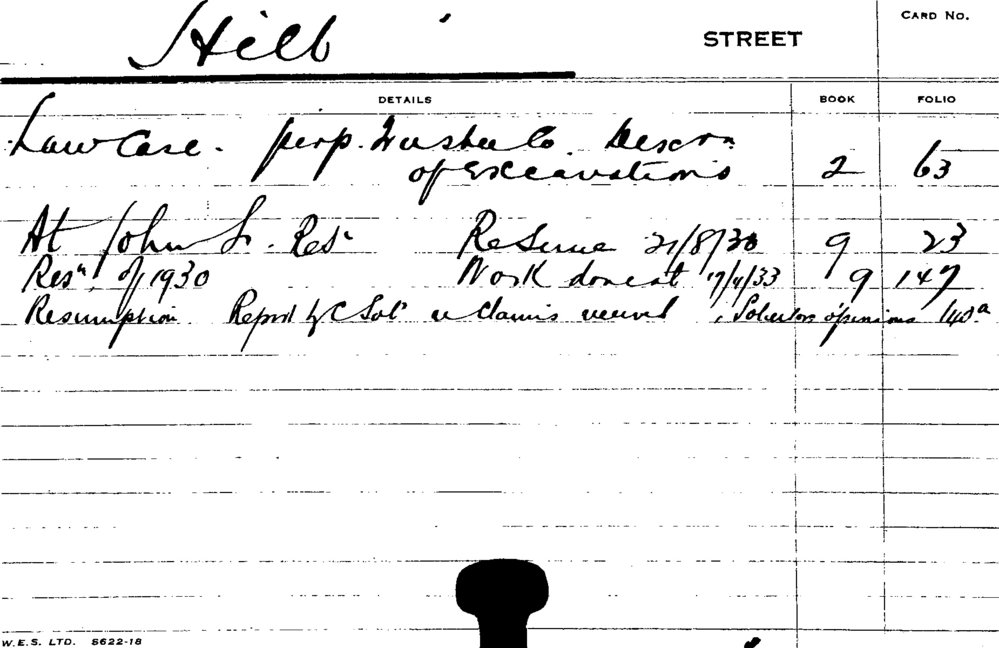 CARD NO.
Hill STREET
DETAILS BOOK FOLIO
Law Case. perp. Trustee Co. Descrn
of Excavations 2 63
At John St. Resr Reserve 21/8/30 9 23
Resn of 1930 Work done at 17/4/33 9 147
Resumption Report by C Solr re Claims received, Solicitors opinions 140a
W.E.S. LTD. 5622-18